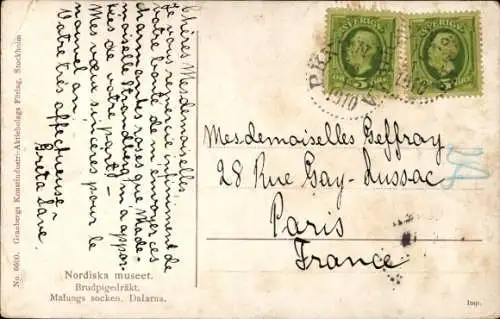 No. 6600. Granbergs Konstindustri-Aktiebolags Förlag, Stockholm
Chères Mesdemoiselles.
Je vous remercie infiniment de
votre bonté de m'envoyer ces
charmantes roses que Made-
moiselle Strandberg m'a appor-
tées de votre part.
Mes vœux sincères pour le
nouvel an.
Votre très affectueuse
Greta
SVERIGE
SVERIGE
5
5
1910
Mesdemoiselles Geffray
28 Rue Gay-Lussac
Paris
France
Nordiska museet.
Brudpigedräkt.
Malungs socken. Dalarna.
Imp.